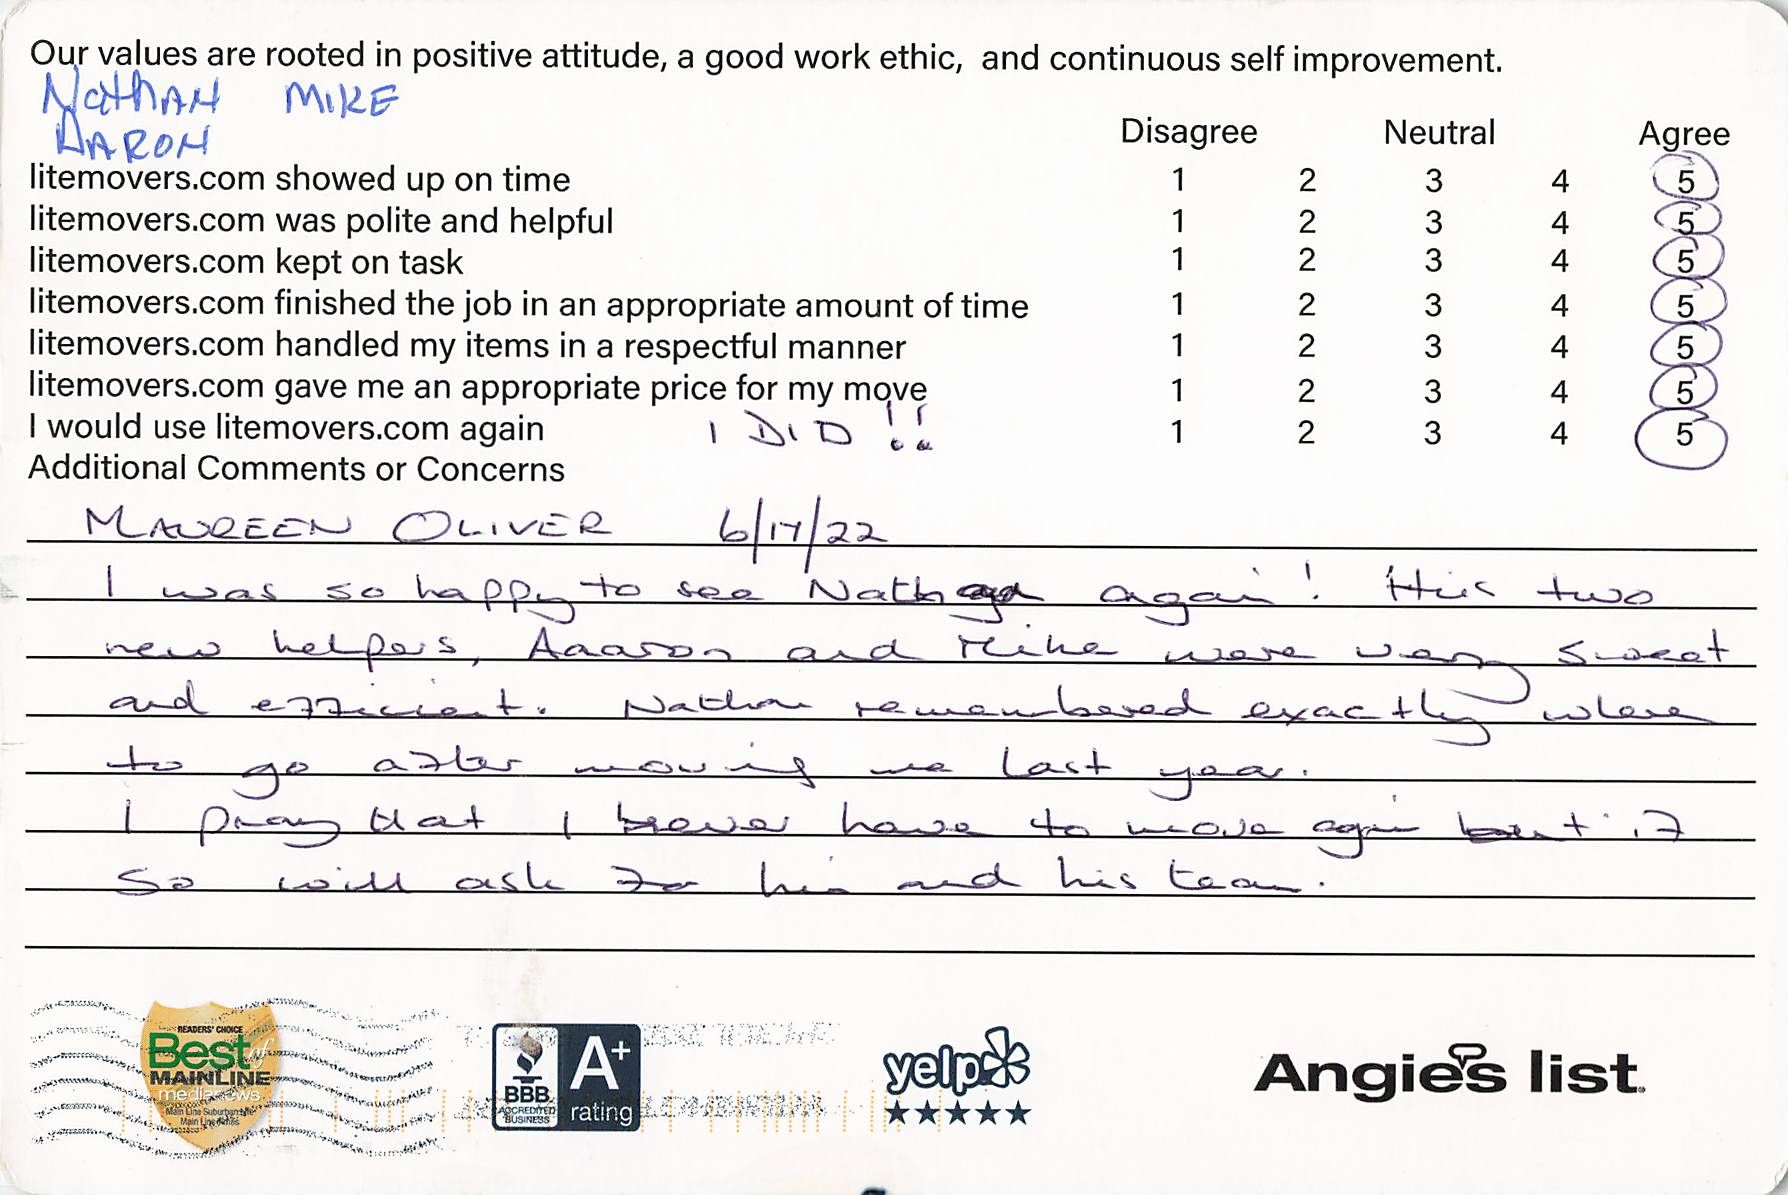 Our values are rooted in positive attitude, a good work ethic, and continuous self improvement.
NathAN MIKE
AARON
Disagree Neutral Agree
litemovers.com showed up on time 1 2 3 4 5
litemovers.com was polite and helpful 1 2 3 4 5
litemovers.com kept on task 1 2 3 4 5
litemovers.com finished the job in an appropriate amount of time 1 2 3 4 5
litemovers.com handled my items in a respectful manner 1 2 3 4 5
litemovers.com gave me an appropriate price for my move 1 2 3 4 5
I would use litemovers.com again I DID !! 1 2 3 4 5
Additional Comments or Concerns
MAUREEN OLIVER 6/17/22
I was so happy to see Nathan again! His two
new helpers, Aaaron and Mike were very sweet
and efficient. Nathan remembered exactly where
to go after moving me last year.
I pray that I never have to move again but if
so will ask for him and his team.
READERS' CHOICE
Best of
MAINLINE
media news
Main Line Suburban Life
Main Line Times
BBB
ACCREDITED
BUSINESS
A+
rating
yelp
Angie's list